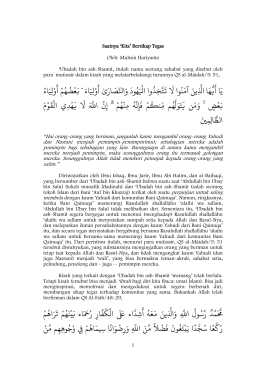 Saatnya 'Kita' Bersikap Tegas
Oleh: Muhsin Hariyanto
'Ubadah bin ash-Shamit, itulah nama seorang sahabat yang disebut oleh
para mufasir dalam kisah yang melatarbelakangi turunnya QS al-Mâidah/5: 51,
يَا أَيُّهَا الَّذِينَ آمَنُوا لَا تَتَّخِذُوا الْيَهُودَ وَالنَّصَارَىٰ أَوْلِيَاءَ ۘ بَعْضُهُمْ أَوْلِيَاءُ
بَعْضٍ ۚ وَمَن يَتَوَلَّهُم مِّنكُمْ فَإِنَّهُ مِنْهُمْ ۗ إِنَّ اللَّهَ لَا يَهْدِي الْقَوْمَ
الظَّالِمِينَ
"Hai orang-orang yang beriman, janganlah kamu mengambil orang-orang Yahudi
dan Nasrani menjadi pemimpin-pemimpin(mu); sebahagian mereka adalah
pemimpin bagi sebahagian yang lain. Barangsiapa di antara kamu mengambil
mereka menjadi pemimpin, maka sesungguhnya orang itu termasuk golongan
mereka. Sesungguhnya Allah tidak memberi petunjuk kepada orang-orang yang
zalim."
Diriwayatkan oleh Ibnu Ishaq, Ibnu Jarir, Ibnu Abi Hatim, dan al-Baihaqi,
yang bersumber dari 'Ubadah bin ash-Shamit bahwa suatu saat 'Abdullah bin Ubay
bin Salul (tokoh munafik Madinah) dan 'Ubadah bin ash-Shamit (salah seorang
tokoh Islam dari Bani 'Auf bin Khazraj) terikat oleh suatu perjanjian untuk saling
membela dengan kaum Yahudi dari komunitas Bani Qainuqa'. Namun, ringkasnya,
ketika Bani Qainuqa' memerangi Rasulullah shallallâhu 'alaihi wa sallam,
'Abdullah bin 'Ubay bin Salul tidak melibatkan diri. Sementara itu, 'Ubadah bin
ash-Shamit segera bergegas untuk menemui (menghadap) Rasulullah shallallâhu
'alaihi wa sallam untuk menyerahkan menjadi setia kepada Allah dan Rasul-Nya,
dan melepaskan ikatan persahabatannya dengan kaum Yahudi dari Bani Qainuqa'
itu, dan secara tegas menyatakan bergabung bersama Rasulullah shallallâhu 'alaihi
wa sallam untuk bersama-sama menentang kaum Yahudi dari komunitas Bani
Qainuqa' itu. Dari peristiwa itulah, menurut para mufasir, QS al-Mâidah/5: 51
tersebut diwahyukan, yang substansinya mengingatkan orang yang beriman untuk
tetap taat kepada Allah dan Rasul-Nya, dan tidak mengangkat kaum Yahudi (dan
juga Nasrani) menjadi 'wali', yang bisa bermakna teman-akrab, sahabat setia,
pelindung, penolong dan – juga — pemimpin mereka.
Kisah yang terkait dengan 'Ubadah bin ash-Shamit 'memang' telah berlalu.
Tetapi kisah tersebut bisa menjadi 'ibrah bagi diri kita (baca: umat Islam). Bisa jadi
menginspirasi, memotivasi dan mengedukasi untuk segera berbenah diri,
membangun sikap tegas terhadap komunitas yang sama. Bukankah Allah telah
berfirman dalam QS Al-Fath/48: 29,
مُّحَمَّدٌ رَّسُولُ اللَّهِ ۚ وَالَّذِينَ مَعَهُ أَشِدَّاءُ عَلَى الْكُفَّارِ رُحَمَاءُ بَيْنَهُمْ ۖ تَرَاهُمْ
رُكَّعًا سُجَّدًا يَبْتَغُونَ فَضْلًا مِّنَ اللَّهِ وَرِضْوَانًا ۖ سِيمَاهُمْ فِي وُجُوهِهِم مِّنْ
1